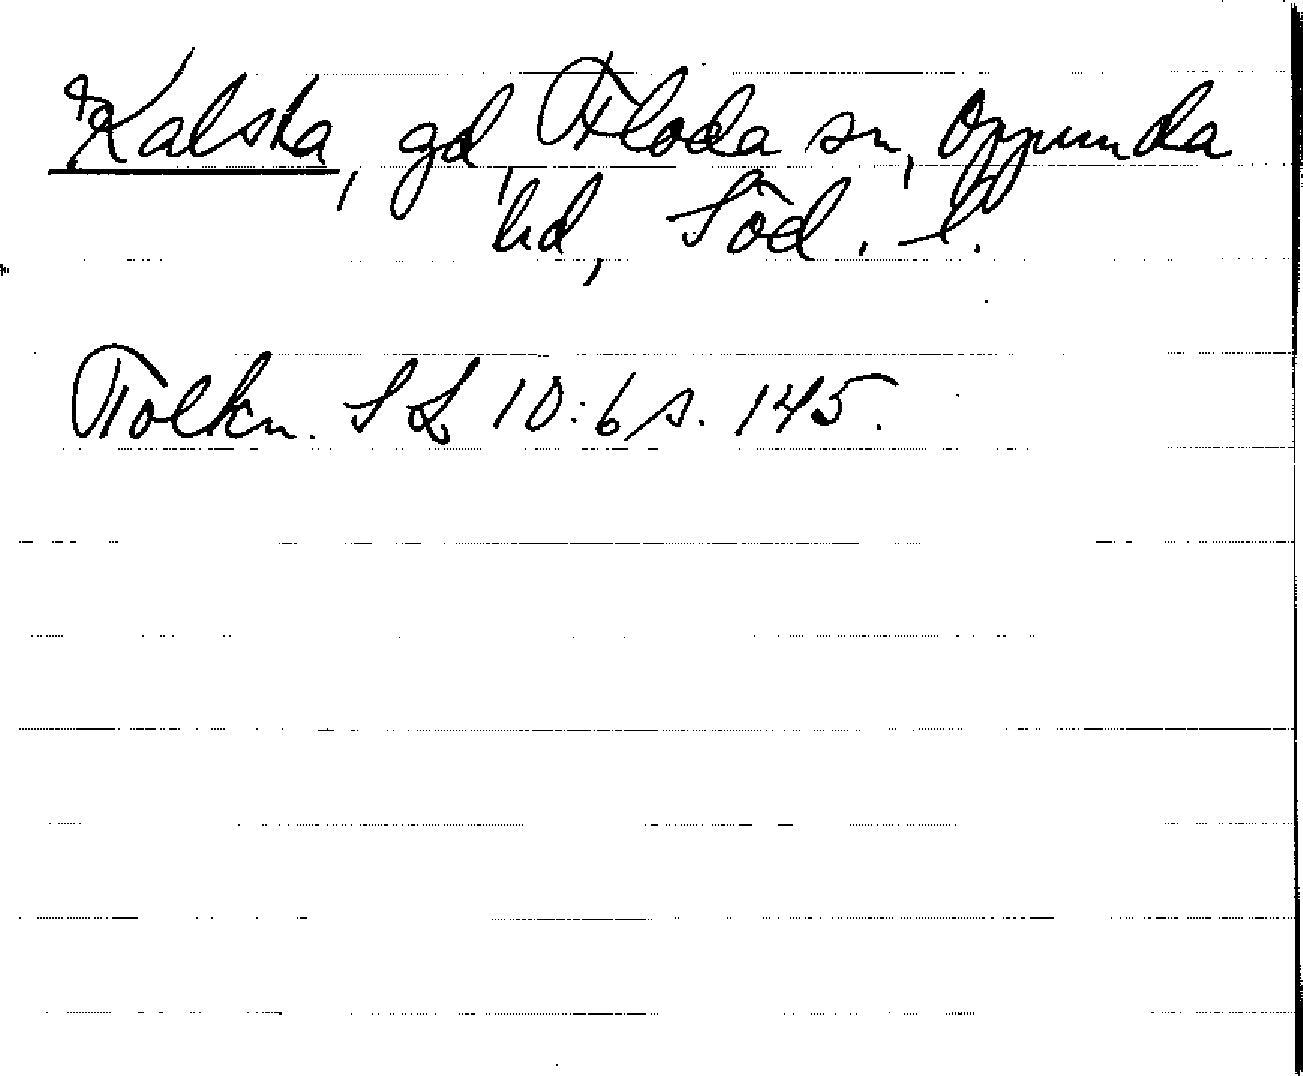 Kalska, gd, Floda sn, Oppunda
hd, Söd. l.
Tolkn. SL 10:6 s. 145.